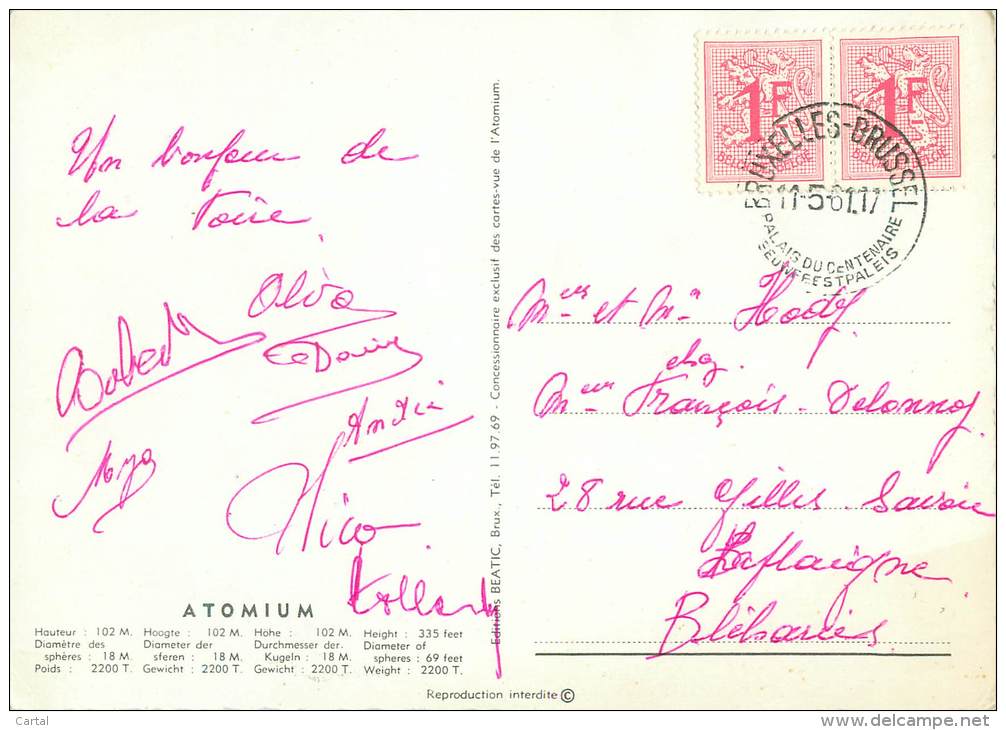 1F 1F
BELGIQUE-BELGIE BELGIQUE-BELGIE
BRUXELLES-BRUSSEL
11-5-61.17
PALAIS DU CENTENAIRE
EEUWFEESTPALEIS
Un bonjour de
la Foire
Oléo
Robert
André
Nico
Mrs et Mme Hody
chez
Mr François Delonnoy
28 rue Gilles Savoie
Laplaigne
Bléharies
Editions BEATIC, Brux., Tél. 11.97.69 - Concessionnaire exclusif des cartes-vue de l'Atomium.
ATOMIUM
Hauteur : 102 M. Hoogte : 102 M. Höhe : 102 M. Height : 335 feet
Diamètre des Diameter der Durchmesser der. Diameter of
sphères : 18 M. sferen : 18 M. Kugeln : 18 M. spheres : 69 feet
Poids : 2200 T. Gewicht : 2200 T. Gewicht : 2200 T. Weight : 2200 T.
Reproduction interdite ©
Cartal
www.delcampe.net